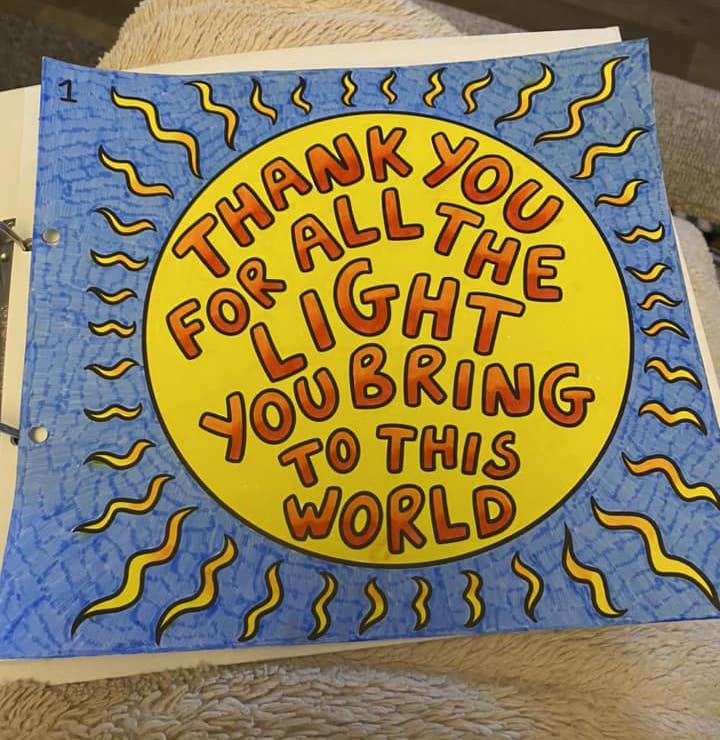 1
THANK YOU
FOR ALL THE
LIGHT
YOU BRING
TO THIS
WORLD